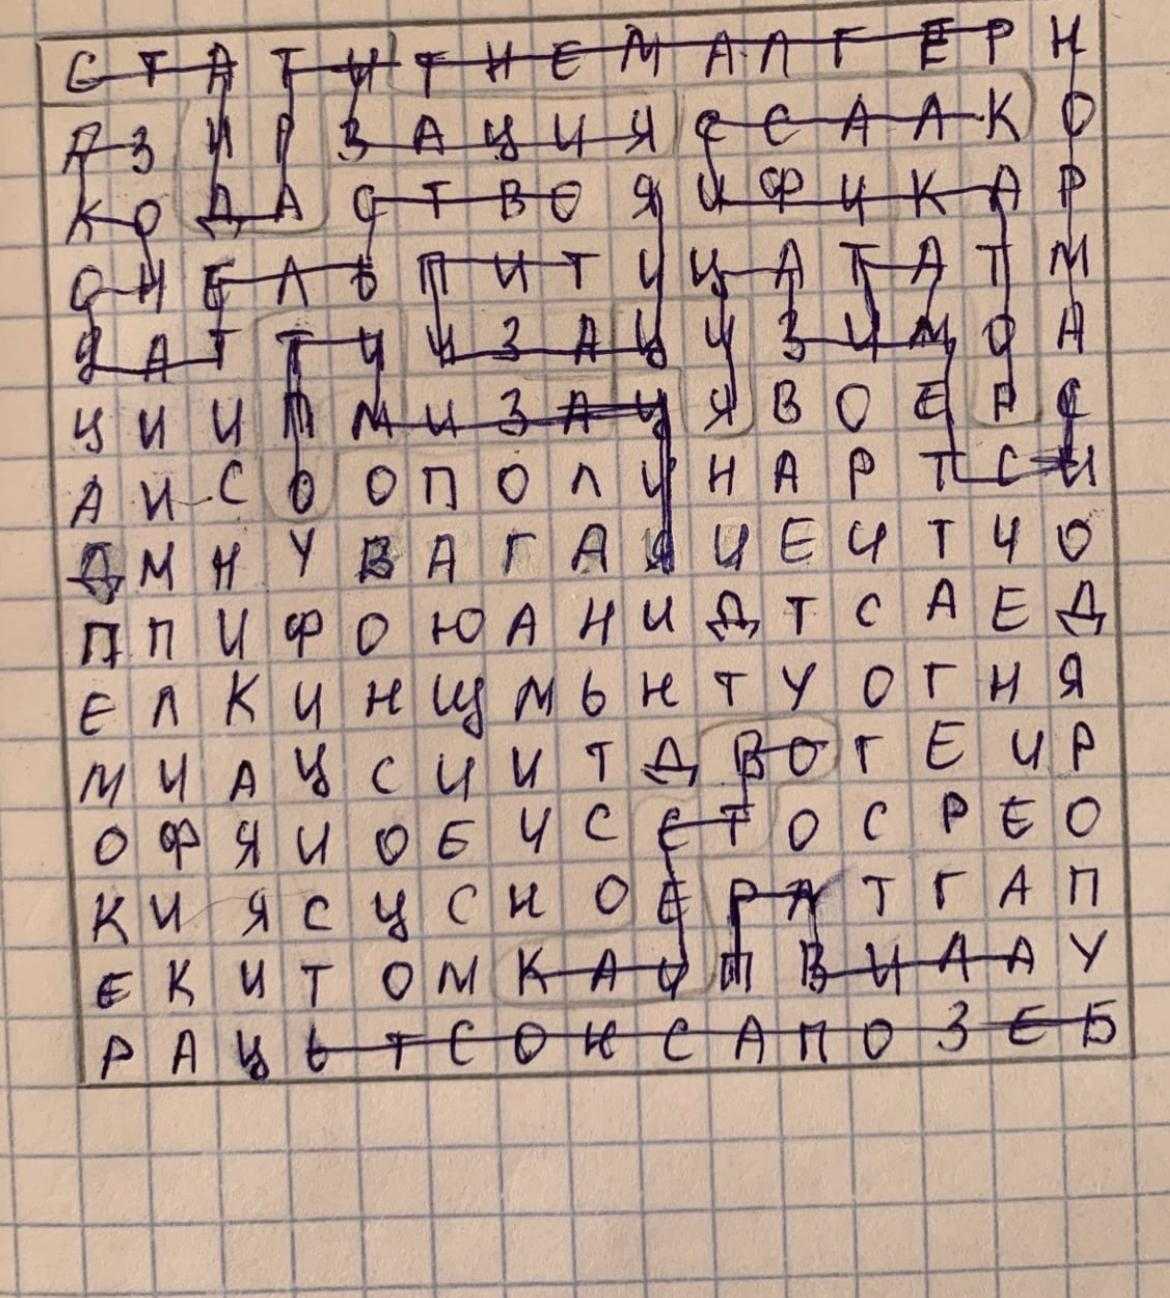 С Т А Т И Т Н Е М А Л Г Е Р Н
А З И Р З А Ц И Я С С А А К О
К О Д А С Т В О Я И Ф И К А Р
О Н Е Л Ь П И Т И Ц А Т А Т М
Я А Т Т И И З А Ц И З И М О А
Ц И И П М И З А Ц Я В О Е Р С
А И С О О П О Л И Н А Р Т С И
Д М Н У В А Г А Я И Е И Т Ч О
П П И Ф О Ю А Н И Д Т С А Е Д
Е Л К И Н Щ М Ь Н Т У О Г Н Я
М И А Ц С И И Т Д В О Г Е И Р
О Ф Я И О Б Ч С С Т О С Р Е О
К И Я С Ц С Н О Е Р А Т Г А П
Е К И Т О М К А Ч П В И Д А У
Р А Ц Ь Т С О Н С А П О З Е Б